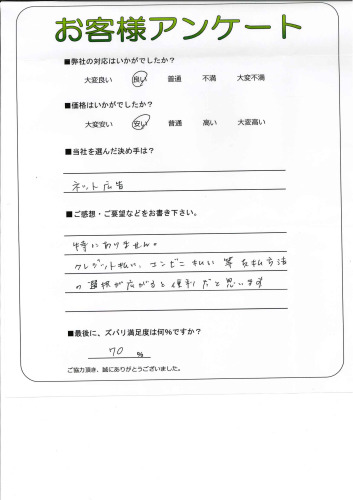 お客様アンケート
■弊社の対応はいかがでしたか？
大変良い 良い 普通 不満 大変不満
■価格はいかがでしたか？
大変安い 安い 普通 高い 大変高い
■当社を選んだ決め手は？
ネット広告
■ご感想・ご要望などをお書き下さい。
特にありません。
クレジット払い、コンビニ払い 等 支払方法
の選択が広がると便利だと思います
■最後に、ズバリ満足度は何%ですか？
70 %
ご協力頂き、誠にありがとうございました。